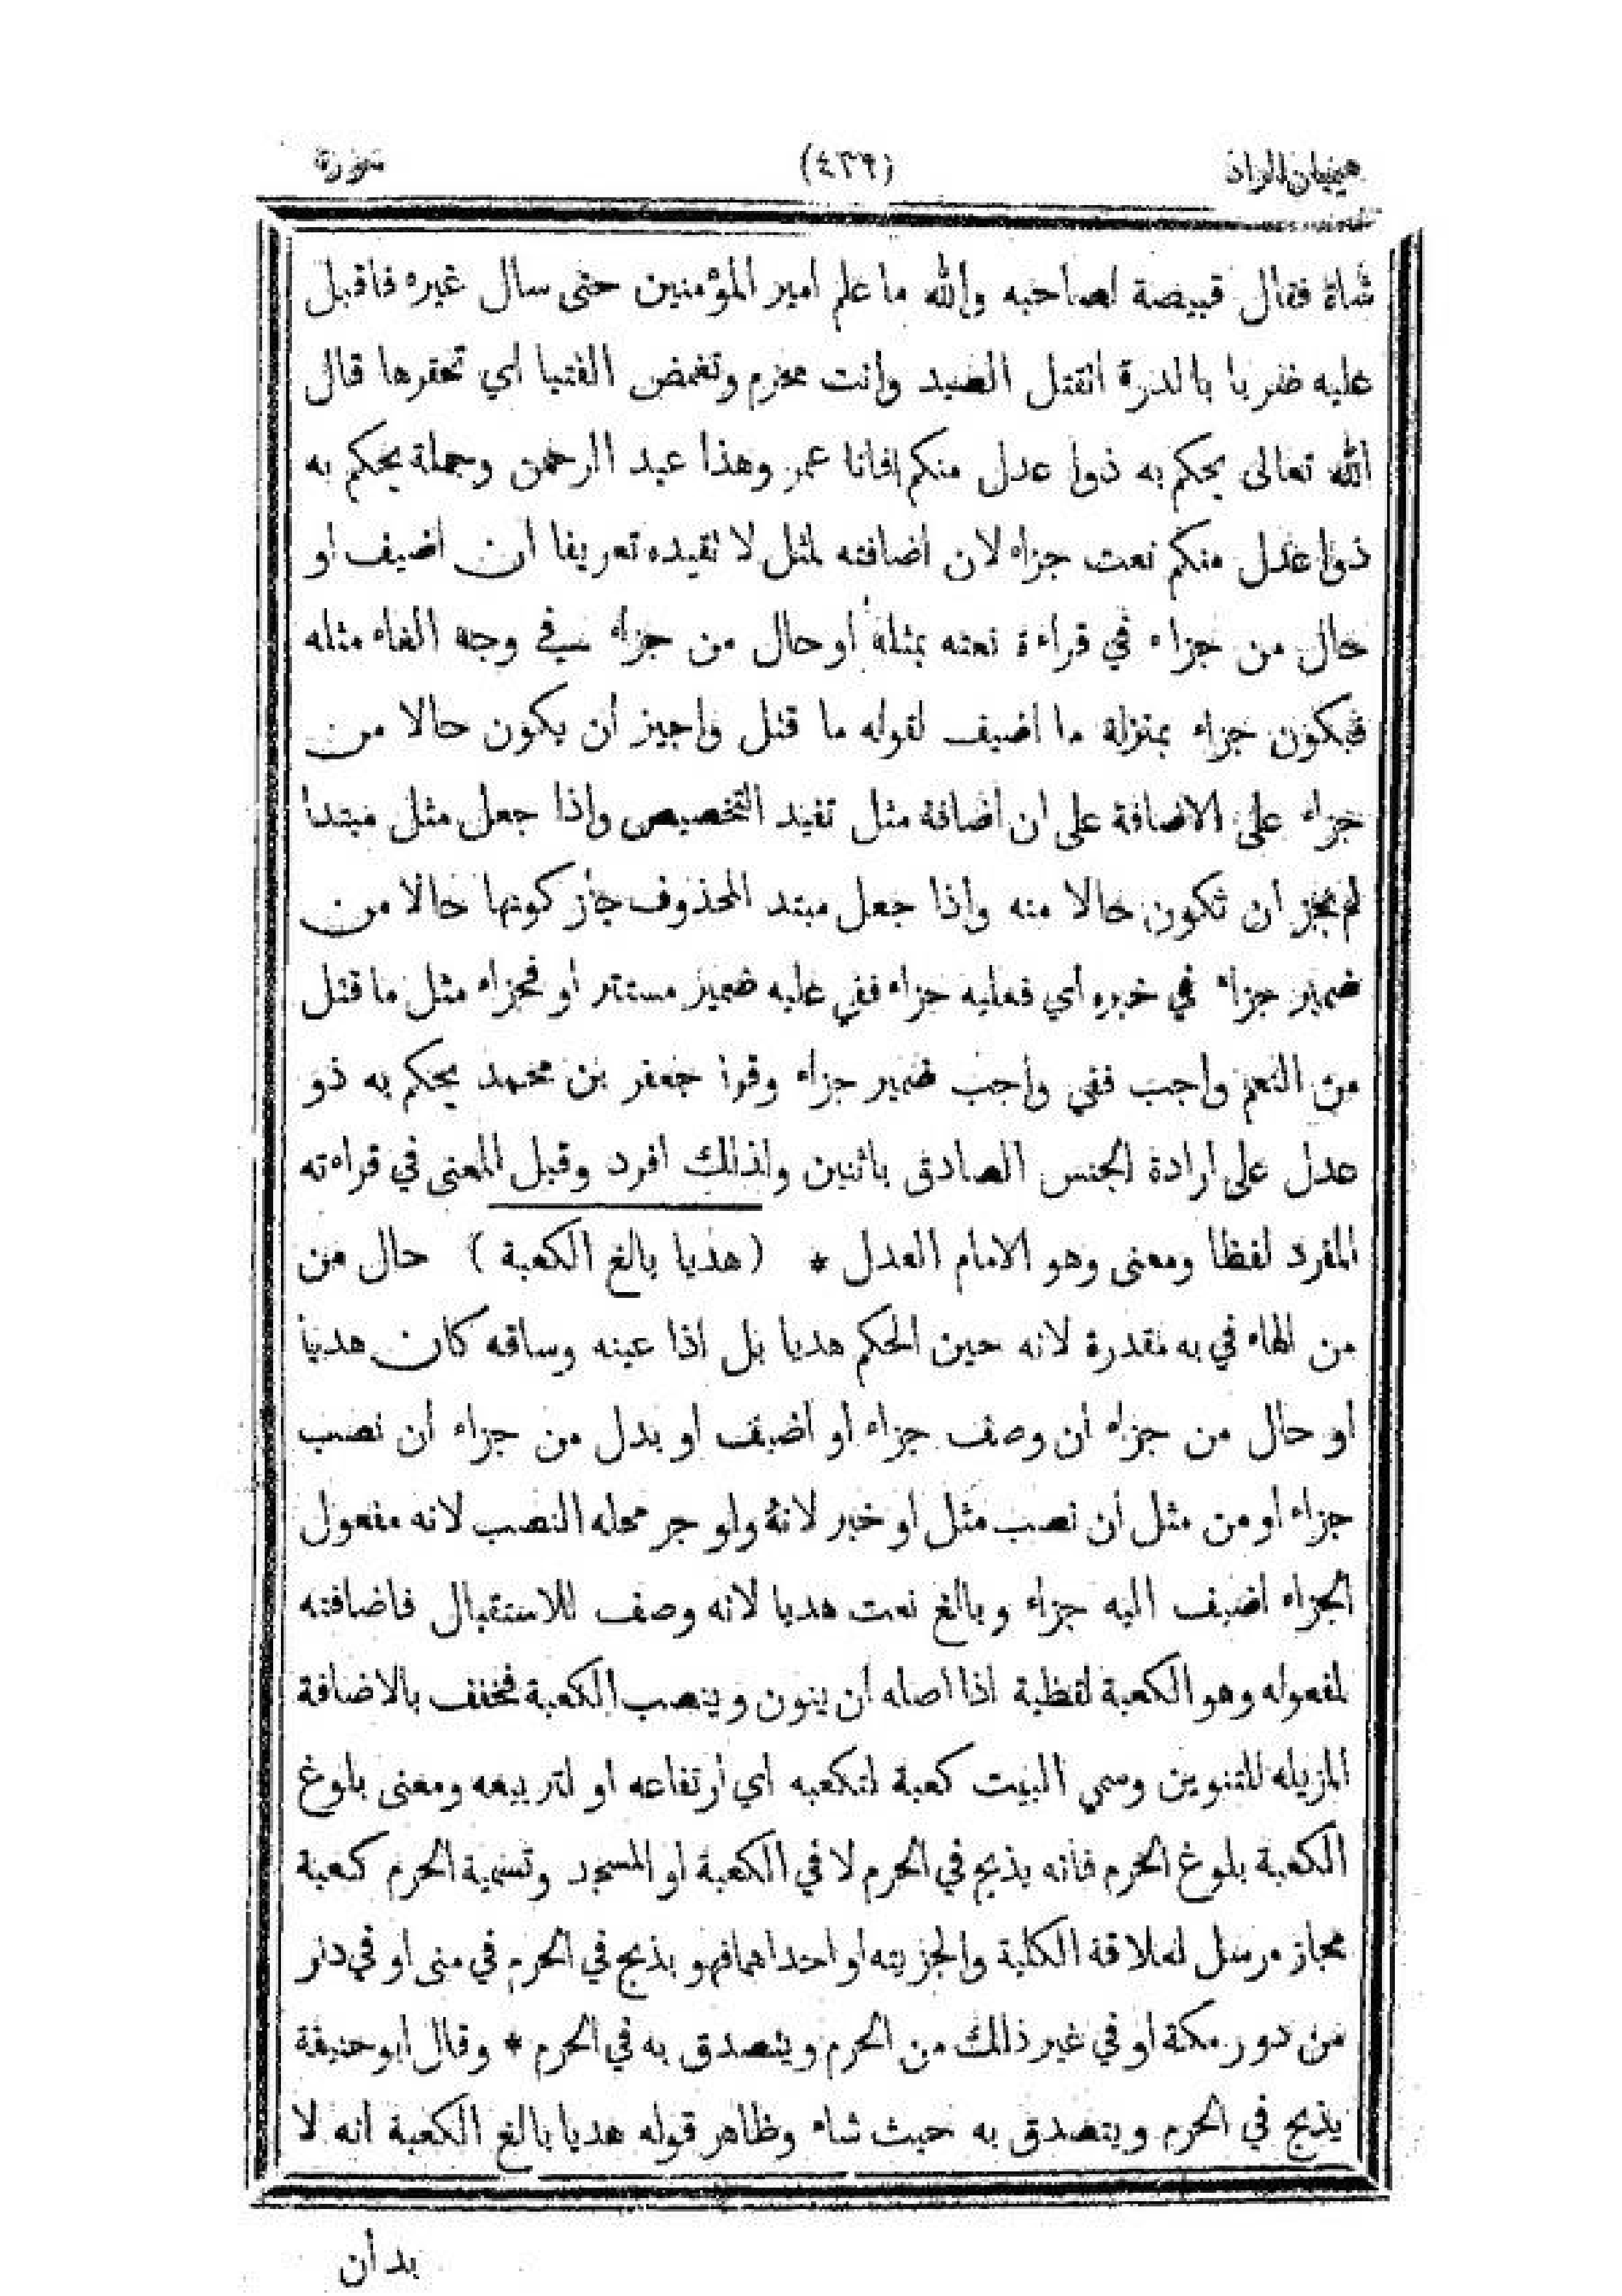 هيميان الزاد (٤٣٩) سورة
شاة فقال قبيصة لصاحبه والله ما علم امير المؤمنين حتى سال غيره فاقبل
عليه ضربا بالدرة اتقتل الصيد وانت محرم وتغمض الفتيا اي تحقرها قال
الله تعالى يحكم به ذوا عدل منكم فانا عمر وهذا عبد الرحمن وجملة يحكم به
ذوا عدل منكم نعت جزاء لان اضافته لمثل لا تفيده تعريفا ان اضيف او
حال من جزاء في قراءة نعته بمثله أو حال من جزاء في وجه الغاء مثله
فيكون جزاء بمنزلة ما اضيف لقوله ما قتل واجيز أن يكون حالا من
جزاء على الاضافة على ان اضافة مثل تفيد التخصيص واذا جعل مثل مبتدأ
لم يجز ان تكون حالا منه واذا جعل مبتد المحذوف جاز كونها حالا من
ضمير جزاء في خبره أي فعليه جزاء ففي عليه ضمير مستتر او فجزاء مثل ما قتل
من النعم واجب ففي واجب ضمير جزاء وقرأ جعفر بن محمد يحكم به ذو
عدل على ارادة الجنس الصادق باثنين ولذلك افرد وقيل المعنى في قراءته
المفرد لفظا ومعنى وهو الامام العدل * (هديا بالغ الكعبة) حال من
من الهاء في به مقدرة لانه حين الحكم هديا بل اذا عينه وساقه كان هديا
او حال من جزاء أن وصف جزاء او أضيف او بدل من جزاء أن نصب
جزاء او من مثل أن نصب مثل او خبر لانه ولو جر محله النصب لانه مفعول
الجزاء اضيف اليه جزاء وبالغ نعت هديا لانه وصف للاستقبال فاضافته
لمفعوله وهو الكعبة لفظية اذا اصله ان ينون وينصب الكعبة فخفف بالاضافة
المزيله للتنوين وسمي البيت كعبة لتكعبه اي ارتفاعه او لتربيعه ومعنى بلوغ
الكعبة بلوغ الحرم فأنه يذبح في الحرم لا في الكعبة او المسجد وتسمية الحرم كعبة
مجاز مرسل لعلاقة الكلية والجزيته او احداهما فهو يذبح في الحرم في منى او في دار
من دور مكة او في غير ذلك من الحرم ويتصدق به في الحرم * وقال ابو حنيفة
يذبح في الحرم ويتصدق به حيث شاء وظاهر قوله هديا بالغ الكعبة انه لا
بد أن